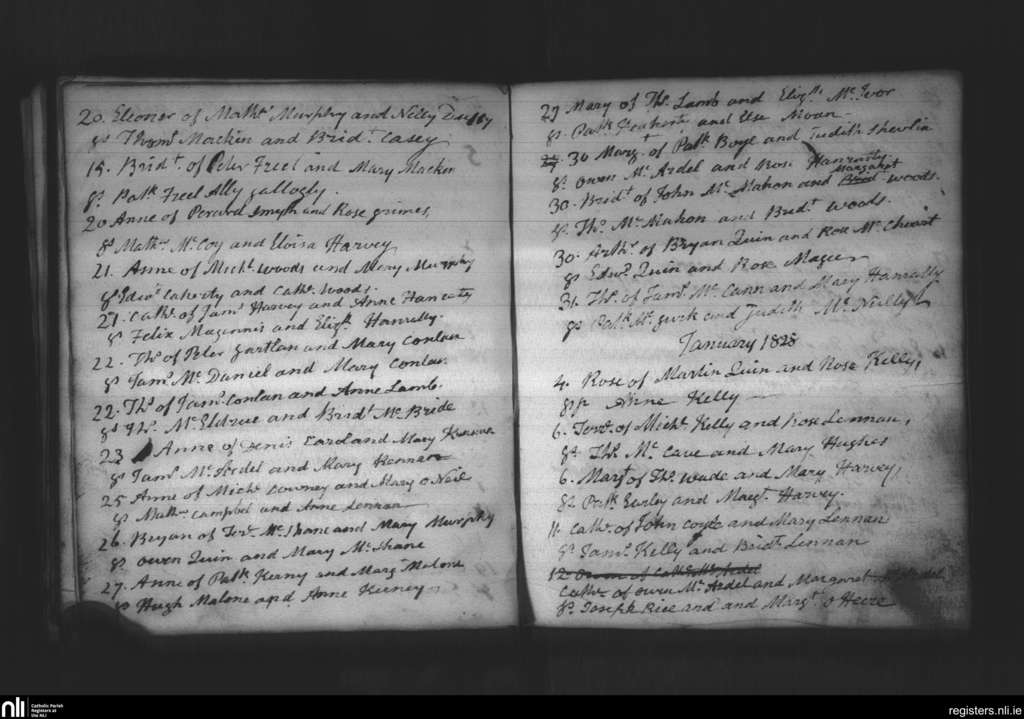 20. Eleoner of Mathw Murphy and Nelly Duffy
gs Thoms Mackin and Bridt Casey
15. Bridt of Peter Freel and Mary Mackin
gs Patk Freel Ally gallogly.
20 Anne of Percival Smyth and Rose grimes,
gs Mathw McCoy and Eloisa Harvey
21. Anne of Michl woods and Mary Murphy
gs Edwd Caherty and Cathe woods.
21. Cathe of Jams Harvey and Anne Hanraty
gs Felix Maginnis and Elizth Hanratty.
22. Ths of Peter gartlan and Mary Conlan
gs Jams McDaniel and Mary Conlan
22. Ths of Jams Conlan and Anne Lamb.
gs Ths McEldrue and Bridt McBride
23 Anne of Denis and Mary
gs Jams McArdel and Mary Kennan
25 Anne of Michl Lowney and Mary o Neil
gs Mathw Campbel and Anne Lennan
26. Bryan of Terce McShane and Mary Murphy
gs owen Quin and Mary McShane
27. Anne of Patk Kerny and Margt Malone
gs Hugh Malone and Anne Keeney
29 Mary of Ths Lamb and Elizth McIvor
gs Patk and Moan
30 Margt of Patk Boyl and Judith Shevlin
gs owen McArdel and Rose Hanratty
30. Bridt of John McMahon and Margaret woods.
gs Ths McMahon and Bridt woods.
30. Arthr of Bryan Quin and Rose McChrist
gs Edwd Quin and Rose Magee
31. Ths of Jams McCann and Mary Hanratty
gs Patk McGurk and Judith McNally
January 1828
4. Rose of Martin Quin and Rose Kelly,
gs Anne Kelly
6. Terce of Michl Kelly and Rose Lennan,
gs Ths McCave and Mary Hughes
6. Margt of Ths wade and Mary Harvey,
gs Patk Eurly and Margt Harvey.
11. Cathe of John Coyle and Mary Lennan
gs Jams Kelly and Bridt Lennan
12 Owen of Cathe McArdel
Cathe of owen McArdel and Margaret
gs Joseph Rice and and Margt o Heere
nli
Catholic Parish
Registers at
the NLI
registers.nli.ie